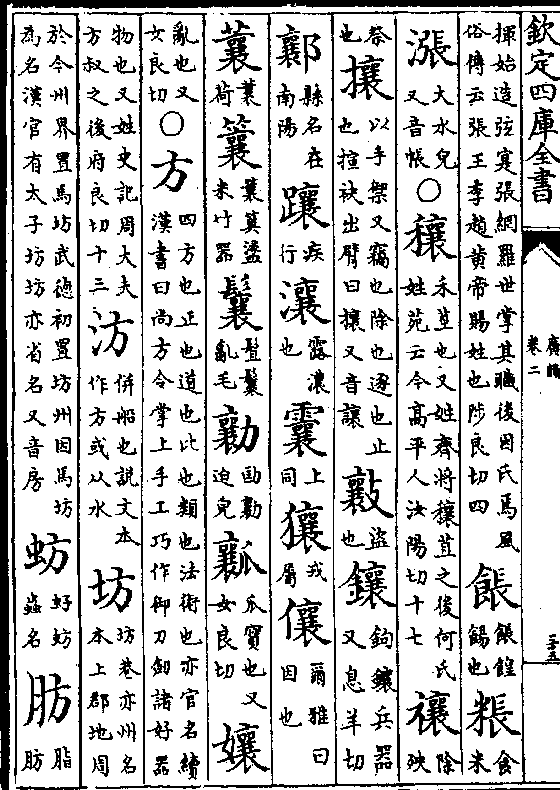 欽定四庫全書
廣韻
卷二
三十五
揮始造弦寔張網羅世掌其職後因氏焉風俗傳云張王李趙黄帝賜姓也陟良切四 餦 餦餭餳也 粻 食米
漲 大水皃又音帳 ○ 穰 禾莖也又姓齊將穰苴之後何氏姓苑云今高平人汝陽切十七 禳 除殃
祭也 攘 以手架又竊也除也逐也止也揎袂出臂曰攘又音讓 盜也 鑲 鉤鑲兵器又息羊切
縣名在南陽 躟 疾行 瀼 露濃也 上同 獽 戎屬 儴 爾雅曰因也
蘘 蘘荷 䉴 䉴箕盝米竹器 鬤 髻鬤亂毛 勷 劻勷迫皃 瓤 瓜實也又女良切 孃
亂也又女良切 ○ 方 四方也正也道也比也類也法術也亦官名續漢書曰尚方令掌上手工巧作御刀劒諸好器
物也又姓史記周大夫方叔之後府良切十三 汸 併船也說文本作方或从水 坊 坊巷亦州名本上郡地周
於今州界置馬坊武德初置坊州因馬坊為名漢官有太子坊坊亦省名又音房 蚄 虸蚄蟲名 肪 脂肪